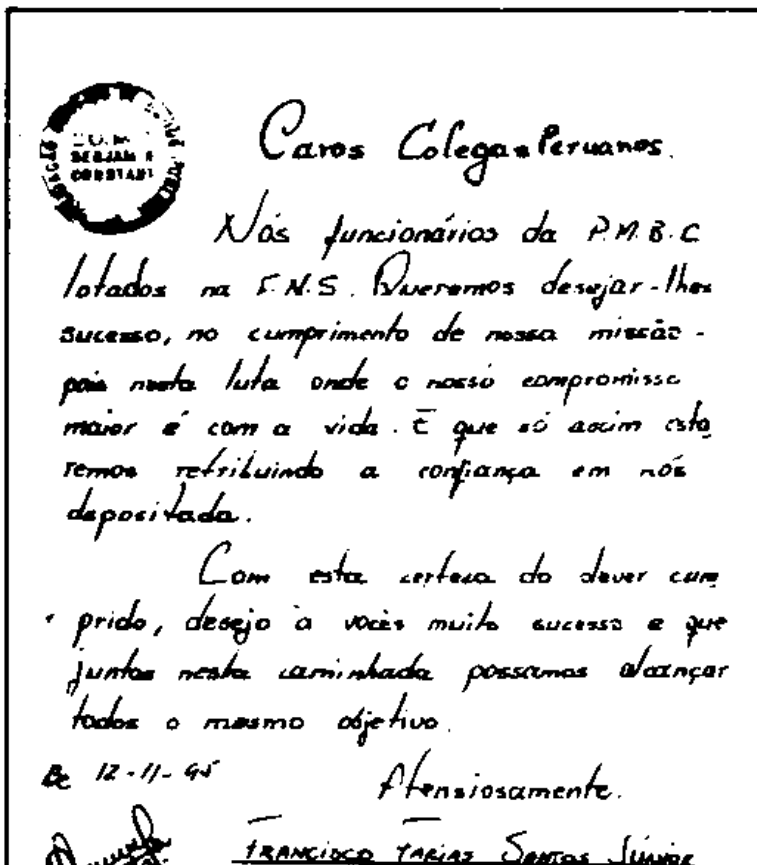 BENJAMIN
CONSTANT
Caros Colegas Peruanos.
Nós funcionários da P.M.B.C
lotados na F.N.S. Queremos desejar-lhes
sucesso, no cumprimento de nossa missão -
pois nesta luta onde o nosso compromisso
maior é com a vida. E que só assim esta
remos retribuindo a confiança em nós
depositada.
Com esta certeza do dever cum
prido, desejo à vocês muito sucesso e que
juntos nesta caminhada possamos alcançar
todos o mesmo objetivo.
Bc 12-11-95
Atensiosamente.
FRANCISCO FARIAS SANTOS JÚNIOR